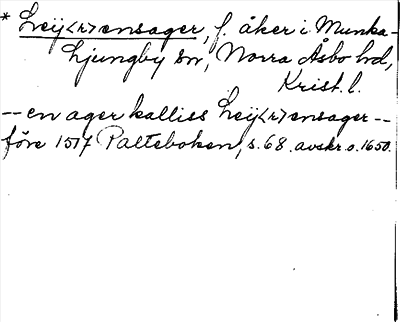 * Leij<r>ensager, f. åker i Munka-
Ljungby sn, Norra Åsbo hd,
Krist. l.
-- en ager kalliss Leij<r>ensager --
före 1517 Palteboken, s. 68. avskr. o. 1650.